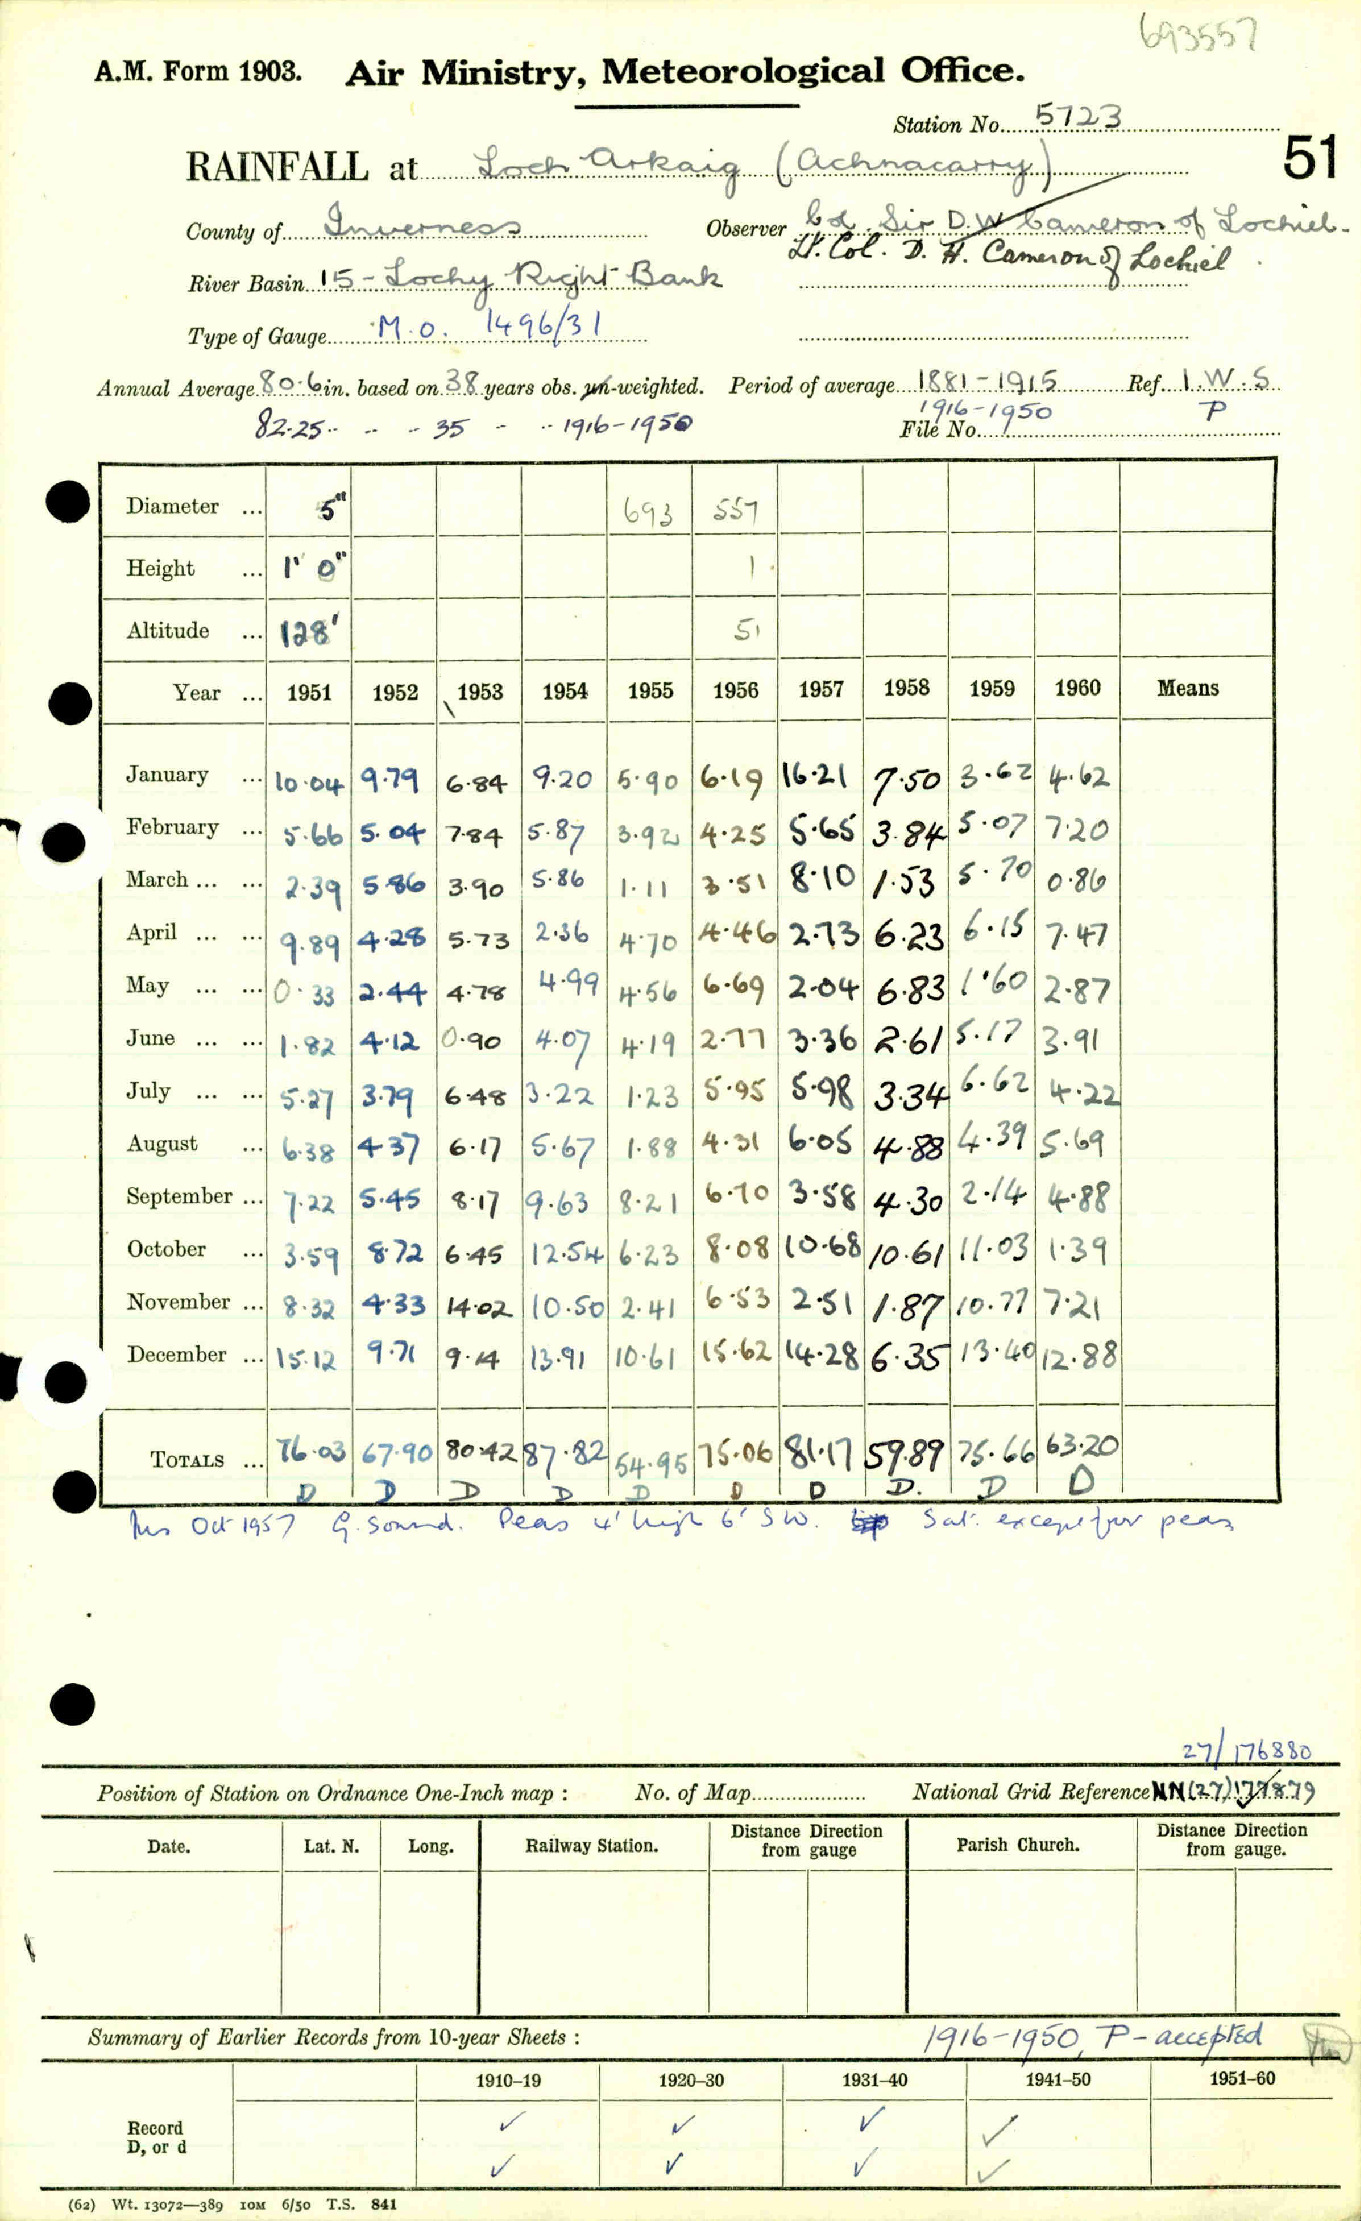 693557
A.M. Form 1903. Air Ministry, Meteorological Office.
Station No. 5723
51
RAINFALL at Loch Arkaig (Achnacarry)
County of Inverness Observer Col Sir D.W Cameron of Lochiel.
Lt. Col. D. H. Cameron of Lochiel
River Basin 15 - Lochy Right Bank
Type of Gauge M.O. 1496/31
Annual Average 80.6 in. based on 38 years obs. un-weighted. Period of average 1881-1915 Ref. I.W.S
82.25 " " " 35 " " 1916-1950 1916-1950 P
File No.
Diameter ... 5" 693 557
Height ... 1' 0" 1
Altitude ... 128' 51
Year ... 1951 1952 1953 1954 1955 1956 1957 1958 1959 1960 Means
January ... 10.04 9.79 6.84 9.20 5.90 6.19 16.21 7.50 3.62 4.62
February ... 5.66 5.04 7.84 5.87 3.92 4.25 5.65 3.84 5.07 7.20
March ... ... 2.39 5.86 3.90 5.86 1.11 3.51 8.10 1.53 5.70 0.86
April ... ... 9.89 4.28 5.73 2.36 4.70 4.46 2.73 6.23 6.15 7.47
May ... ... 0.33 2.44 4.78 4.99 4.56 6.69 2.04 6.83 1.60 2.87
June ... ... 1.82 4.12 0.90 4.07 4.19 2.77 3.36 2.61 5.17 3.91
July ... ... 5.27 3.79 6.48 3.22 1.23 5.95 5.98 3.34 6.62 4.22
August ... 6.38 4.37 6.17 5.67 1.88 4.31 6.05 4.88 4.39 5.69
September ... 7.22 5.45 8.17 9.63 8.21 6.70 3.58 4.30 2.14 4.88
October ... 3.59 8.72 6.45 12.54 6.23 8.08 10.68 10.61 11.03 1.39
November ... 8.32 4.33 14.02 10.50 2.41 6.53 2.51 1.87 10.77 7.21
December ... 15.12 9.71 9.14 13.91 10.61 15.62 14.28 6.35 13.40 12.88
TOTALS ... 76.03 67.90 80.42 87.82 54.95 75.06 81.17 59.89 75.66 63.20
D D D D D D D D. D D
Ins Oct 1957 G. Sound. Peas 4' high 6' SW. Sat. except for peas
27/176880
Position of Station on Ordnance One-Inch map : No. of Map National Grid Reference NN(27)177879
Date. Lat. N. Long. Railway Station. Distance from gauge Direction Parish Church. Distance from gauge. Direction
Summary of Earlier Records from 10-year Sheets : 1916-1950, P - accepted
1910–19 1920–30 1931–40 1941–50 1951–60
Record ✓ ✓ ✓ ✓
D, or d ✓ ✓ ✓ ✓
(62) Wt. 13072—389 10M 6/50 T.S. 841